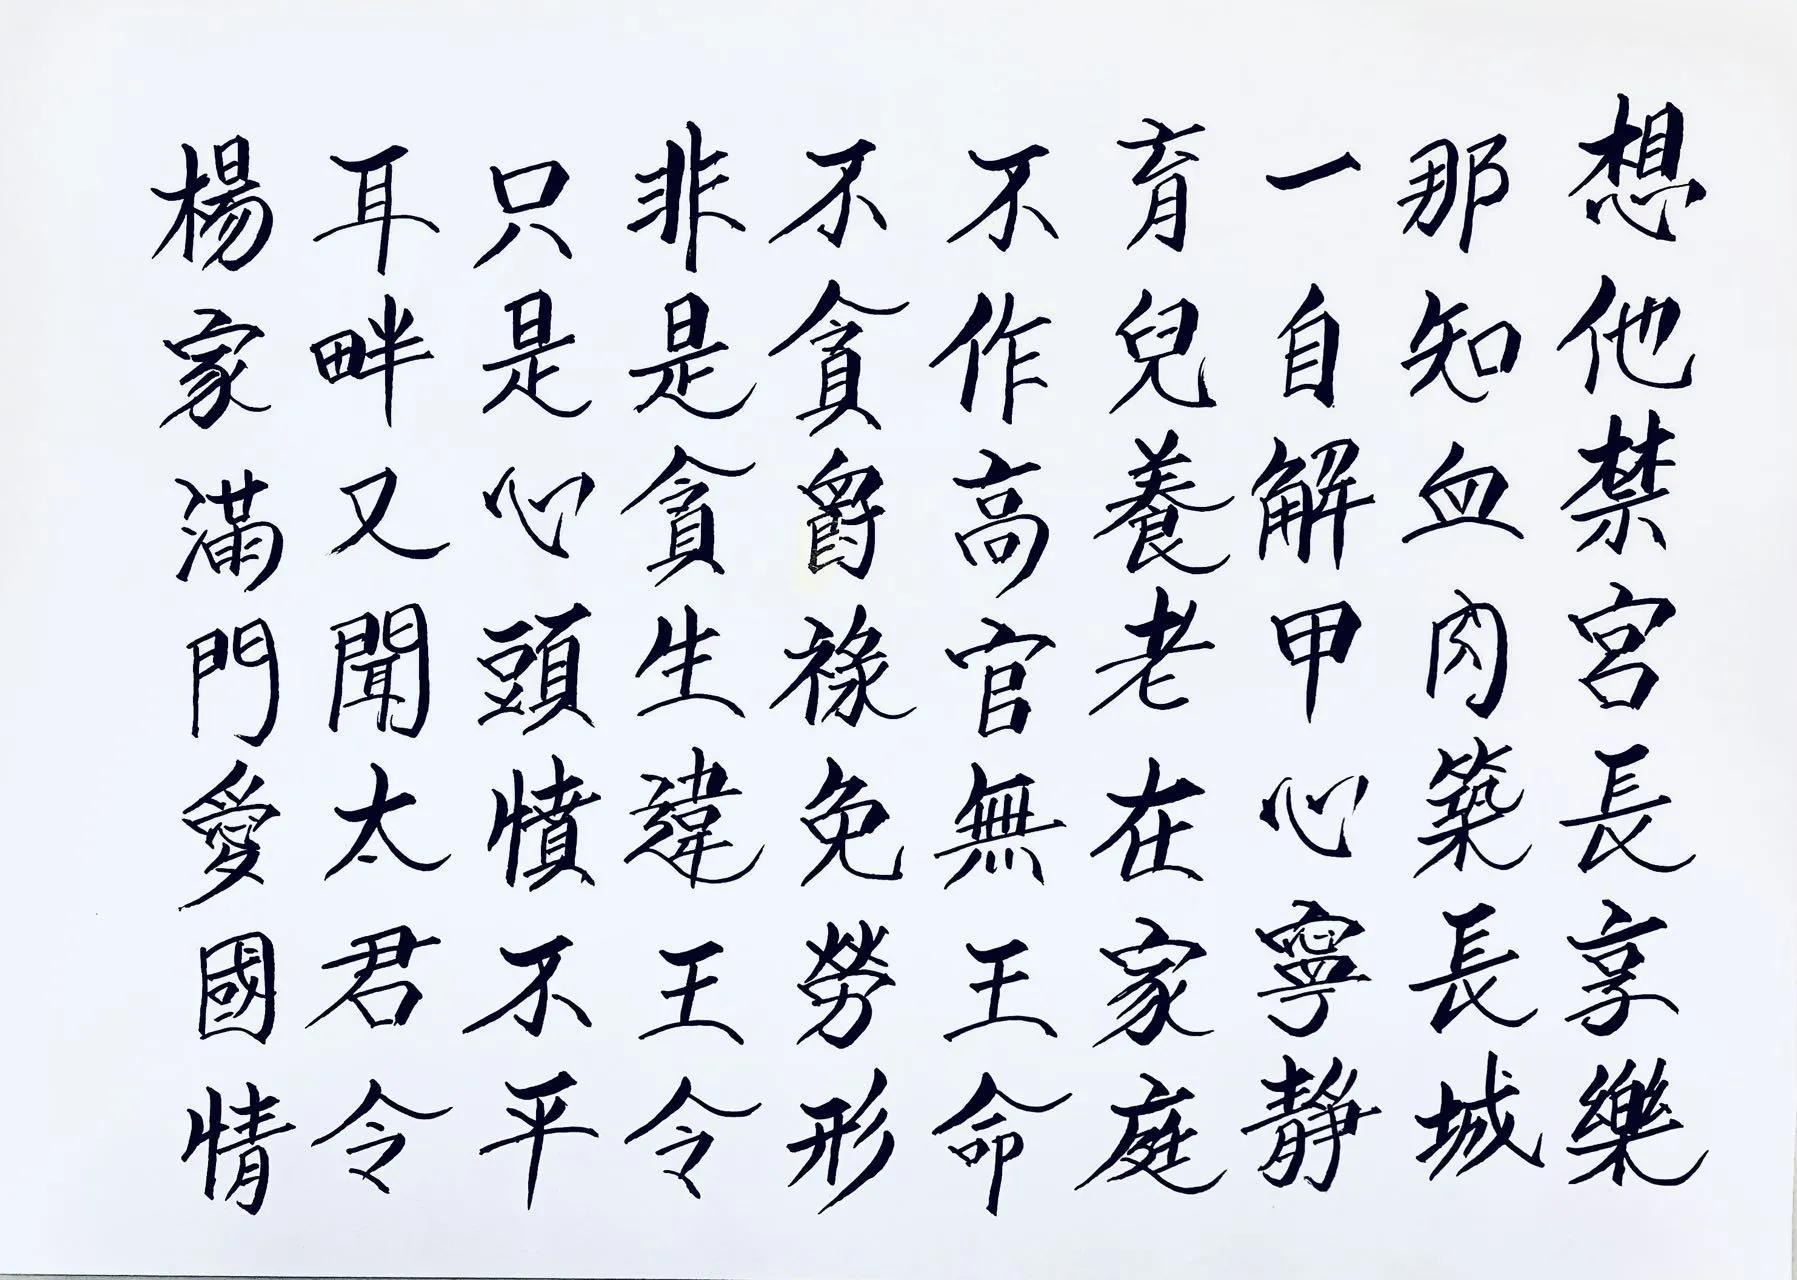 想他禁宮長享樂
那知血肉築長城
一自解甲心寧靜
育兒養老在家庭
不作高官無王命
不貪爵祿免勞形
非是貪生違王令
只是心頭憤不平
耳畔又聞太君令
楊家滿門愛國情